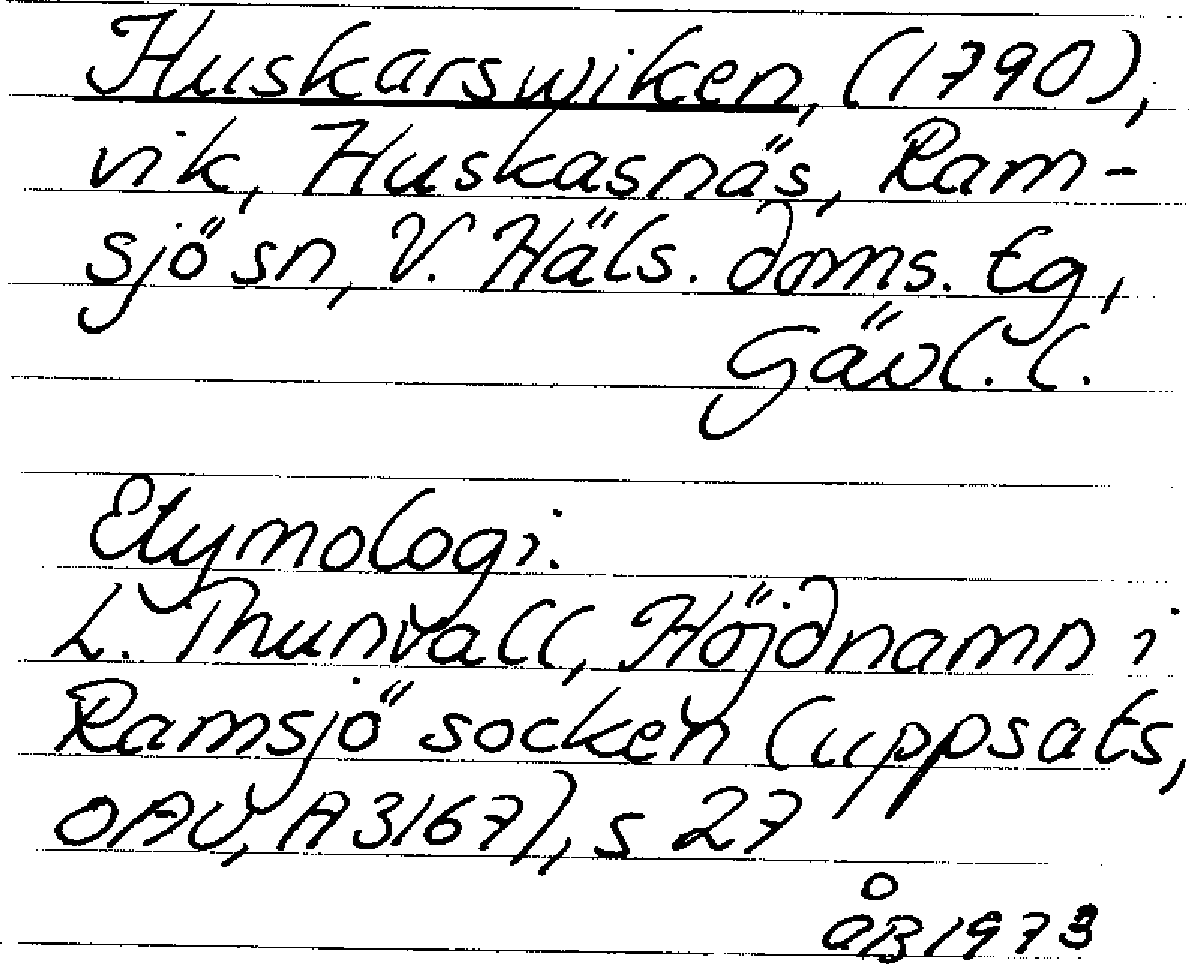 Huskarswiken, (1790),
vik, Huskasnäs, Ram-
sjö sn, V. Häls. doms. tg,
Gävl. l.
Etymologi.
L. Thunvall, Höjdnamn i
Ramsjö socken (uppsats,
OAU, A 3167), s 27
ÅB 1973